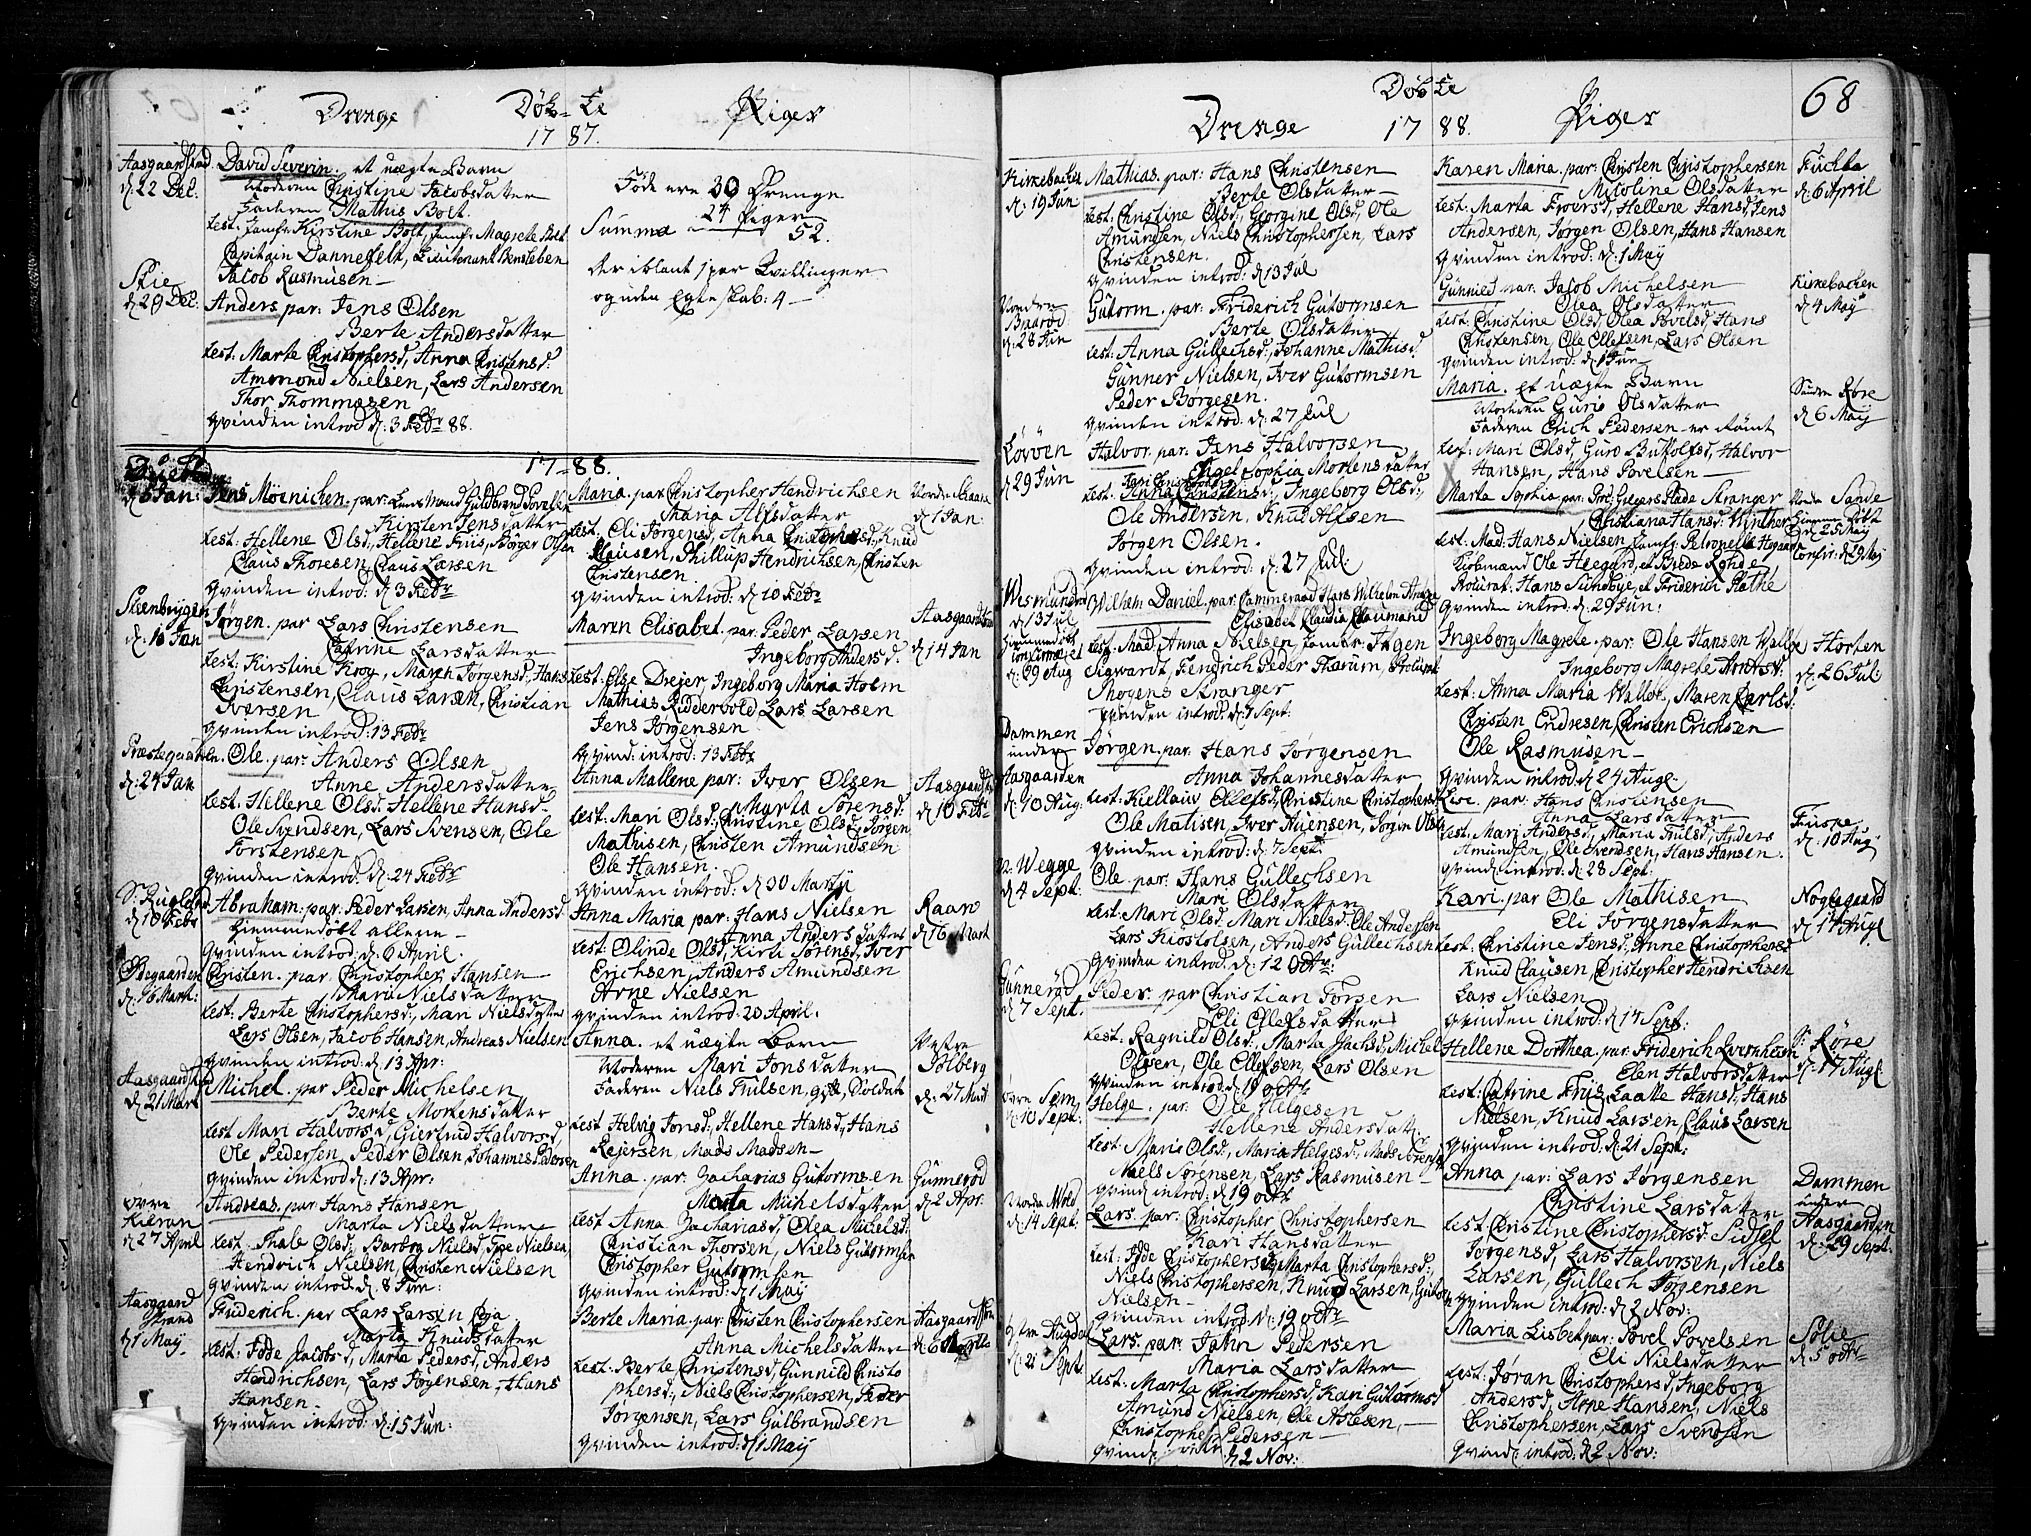 Drenge Døb- te Piger
17 87.
Aasgaardstrad
d: 22 Dec.
David Severin. et uægte Barn
Moderen Christine Jacobsdatter
Faderen Mathis Bolt.
test: Jomfr: Kirstine Bolt, Jomfr: Magrete Bolt
Capitain Dannefelt, Lieutenant
Jacob Rasmusen
Skie
d: 29 Dec:
Anders par: Jens Olsen
Berte Andersdatter
test: Marte Christophersd, Anna Christensd:
Ammond Nielsen, Lars Andersen
Thor Thommesen
qvinden introd d: 3 Febr 88.
Føde ere 30 Drenge
24 Piger
Summa 52.
Der iblant 1 par Tvillinger
og uden Egteskab: 4
17-88.
d: 6 Jan:
Jens Mörnichen. par: Guldbrand Povelsen
Kirsten Jensdatter
test: Hellene Olsd:, Hellene Friis, Børger Olsen
Claus Thoresen, Claus Larsen
qvinden introd: d: 3 Febr
Steenbrygen
d: 10 Jan
Jørgen. par Lars Christensen
Catrine Larsdatter
test: Kirstine Krog, Maren Jørgensd:, Hans
Christensen, Claus Larsen, Christian
Iversen
qvinden introd: 13 Febr
Præstegaarden.
d: 24 Jan
Ole. par: Anders Olsen
Anne Andersdatter
test: Hellene Olsd: Hellene Hansd:
Ole Svendsen, Lars Svensen, Ole
Torstensen
qvinden introd: d: 24 Febr
S: Rugland
d: 10 Febr
Abraham. par: Peder Larsen, Anna Andersd:
Hiemmedøbt allene
qvinden introd d: 6 April.
Øbegaarden
d: 16 Mart:
Christen. par Christopher Hansen
Mari Nielsdatter
test: Berte Christophersd:, Mari Nielsdatter
Lars Olsen, Jacob Hansen, Andreas Nielsen
qvinden introd: d 13 Apr:
Aasgaardstr
d: 21 Mart
Michel. par Peder Michelsen
Berte Mortensdatter
test Mari Halvorsd, Giertrud Halvorsd,
Ole Pedersen, Peder Olsen, Johannes Pedersen
qvinden introd d: 13 Apr:
øvre
Kieran
d 27 April
Andreas par Hans Hansen
Marta Nielsdatter
test: Thale Olsd:, Barbro Nielsd, Tope Nielsen,
Hendrich Nielsen, Christen Nielsen
qvinden introd: d. 8 Jun:
Aasgaard
strand
d 1 Maij.
Friderich. par Lars Larsen Caja
Marta Knudsdatter
test: Idde Jacobsd, Marta Pedersd, Anders
Hendrichsen, Lars Jørgensen, Hans
Hansen.
qvinden introd: d: 15 Jun:
Maria. par Christopher Hendrichsen
Maria Alfsdatter
test. Eli Jørgensd:, Anna Christophersd:, Knud
Clausen, Phillup Hendrichsen, Christen
Christensen.
qvinden introd: d 10 Febr
Nordre Skaane
d: 1 Jan:
Maren Elisabet. par: Peder Larsen
Ingeborg Andersd.
test: Else Drejer, Ingeborg Maria Holm
Mathias Riddervold, Lars Larsen
Jens Jørgensen
qvind: introd: 13 Febr
Aasgaardstran
d: 14 Jan
Anna Mallene par: Iver Olsen
Marta Sørensd:
test: Mari Olsd:, Christine Olsd:, Jørgen
Mathisen, Christen Amundsen
Ole Hansen.
qvinden introd: d 30 Martij
Aasgaardstr
d: 10 Feb
Anna Maria par: Hans Nielsen
Anna Andersdatter
test: Olinde Olsd, Kirsti Sørensd:, Iver
Erichsen, Anders Amundsen
Arne Nielsen
qvinden introd: 20 April.
Raan
d: 16 Mart
Anna. et uægte Barn
Moderen Mari Jonsdatter
Faderen Niels Trulsen, gift Soldat
test Helvig Jonsd:, Hellene Hansd:, Hans
Rejersen, Mads Madsen
Vestre
Solberg
d: 27 Mart
Anna. par: Zacharias Gutormsen
Marta Michelsdatter
test Anna Zachariasd, Olea Michelsd:
Christian Thorsen, Niels Gutormsen
Christopher Gutormsen
qvinden introd: d 1 Maij
Gunnerød
d 2 Apr:
Berte Maria. par: Christen Christophersen
Anna Michelsdatter
test: Berte Christensd, Gunnild Christo
phersd, Niels Christophersen, Peder
Jørgensen, Lars Gulbrandsen
qvinden introd: d 1 Maij
Aasgaardstran
Drenge Døbte Piger 68
17 88.
Kirkebacken
d: 19 Jun
Mathias. par: Hans Christensen
Berte Olsdatter
test: Christine Olsd:, Georgine Olsd, Ole
Amundsen, Niels Christophersen, Lars
Christensen.
qvinden introd: d 13 Jul
Nordre
d: 28 Jun
Gutorm. par: Friderich Gutormsen
Berte Olsdatter
test: Anna Gullechsd:, Johanne Mathisd:
Gunner Nielsen, Iver Gutormsen
Peder Børgesen.
qvinden introd: d: 27 Jul
Løvøen
d: 29 Jun
Halvor. par: Jens Halvorsen
Engel Sophia Mortensdatter
test. Anna Christensd:, Ingeborg Olsd:,
Ole Andersen. Knud Alfsen
Jørgen Olsen.
qvinden introd: d: 27 Jul:
Wesmundrø
d 13 Jul
hiemmedøbt
confirmeret
d: 29 Aug
Wilhelm Daniel. par: Cammeraad Hans Wilhelm
Elisabet Claudia Claumand
test: Mad: Anna Nielsen, Jomfr: Ingen
Sigwardt, Fendrich Peder Tharum, Procurat:
Mogens Stranger
qvinden introd: d: 7 Sept:
Dammen
under
Aasgaarden
d: 10 Aug:
Jørgen. par: Hans Jørgensen
Anna Johannesdatter
test: Kiellaug Ollefsd, Christine Christophersd
Ole Matisen, Iver Auensen, Jørgen Olsen
qvinden introd: d: 7 Sept:
n: Wegge
d 4 Sept:
Ole. par: Hans Gullechsen
Mari Olsdatter
test: Mari Olsd: Mari Nielsd: Ole Andersen
Lars Kiostolsen, Anders Gullechsen
qvinden introd: d: 12 Octr:
Gunnerød
d 7 Sept.
Peder. par Christian Torsen
Eli Ellefsdatter
test: Ragnild Olsd:, Marta Jachsd:, Michel
Olsen, Ole Ellefsen, Lars Olsen
qvinden introd: d 19 octr
øvre Sem
d: 10 Sept:
Helge. par: Ole Helgesen
Hellene Andersdatt:
test: Mari Olsd:, Maria Helgesd, Mads Sørensen
Niels Sørensen, Lars Rasmusen
qvind introd: d 19 octr
d: 14 Sept:
Lars. par: Christopher Christophersen
Kari Hansdatter
test: Idde Christophersd, Marta Christophersd:,
Niels Christophersen, Knud Larsen, Gutorm
Nielsen
qvinden introd d: 19 octr
d: 21 Sept:
Lars. par: John Pedersen
Maria Larsdatter
test: Marta Christophersd, Kari Gutormsd
Amund Nielsen, Ole Aslesen,
Christopher Pedersen
qvind: introd d 2 Nov:
Karen Maria par: Christen Christophersen
Nicoline Olsdatter
test: Marta Frorsd, Hellene Hansd, Jens
Andersen, Jørgen Olsen, Hans Hansen
qvinden introd: d: 1 Maij
Fuchta
d: 6 April
Gunnied par: Jacob Michelsen
Olea Olsdatter
test: Christine Olsd, Olea Povelsd, Hans
Christensen, Ole Ollefsen, Lars Olsen
qvinden introd: d: 1 Jun
Kirkebacken
d 4 Maij
Maria. et uægte Barn
Moderen Guro Olsdatter
Faderen Erich Pedersen er Rømt
test: Mari Olsd, Guro Butholfsd, Halvor
Hansen, Hans Povelsen
Søndre Røre
d 6 Maij
Marta Sophia par: Proc: Giegers Plade Stranger
Christiana Hansd: Winther
test: Mad: Hans Nielsen, Jomfr: Petronelle Hegaard
Kiøbmand Ole Heegard, et Brede Rohde
Procurat: Hans Sundbye, et Friderich Plathe
qvinden introd: d: 29 Jun:
Nordre Sande
hiemmedøbt
d 25 Maij
Confir: d 29 Maj
Ingeborg Magrete. par: Ole Hansen Walløe
Ingeborg Magrete Arntsd:
test: Anna Maria Walløe, Maren Carlsd:
Christen Endresen, Christen Erichsen
Ole Rasmusen
qvinden introd: d 24 Aug.
Horten
d: 26 Jul:
Live. par: Hans Christensen
Anna Larsdatter
test: Mari Andersd, Maria Trulsd, Anders
Amundsen, Ole Svendsen, Hans Hansen.
qvinden introd: d: 28 Sept:
d: 10 Aug
Kari. par Ole Mathisen
Eli Jørgensdatter
test: Christine Jensd:, Anne Christophersd
Knud Clausen, Christopher Hendrichsen
Lars Nielsen
qvinden introd: d 14 Sept:
Nøglegaard
d: 17 Augt
Hellene Dorthea. par: Friderich Qvernheim
Elen Halvorsdatter
test: Catrine Friis, Laatte Hansd:, Hans
Nielsen, Knud Larsen, Claus Larsen
qvinden introd: d: 21 Sept:
S: Røre
d: 17 Augt
Anna par: Lars Jørgensen
Christine Larsdatter
test Christine Christophersd: Sidsel
Jørgensd, Lars Halvorsen, Niels
Larsen, Gullech Jørgensen
qvinden introd: d: 2 Nov:
Dammen
under
Aasgaarden
d: 29 Sept:
Maria Lisbet par: Povel Povelsen
Eli Nielsdatter
test: Jøran Christophersd, Ingeborg
Andersd, Arne Hansen, Niels
Christophersen, Lars Svendsen
qvind: introd: d: 2 Nov:
Solie
d 5 octr